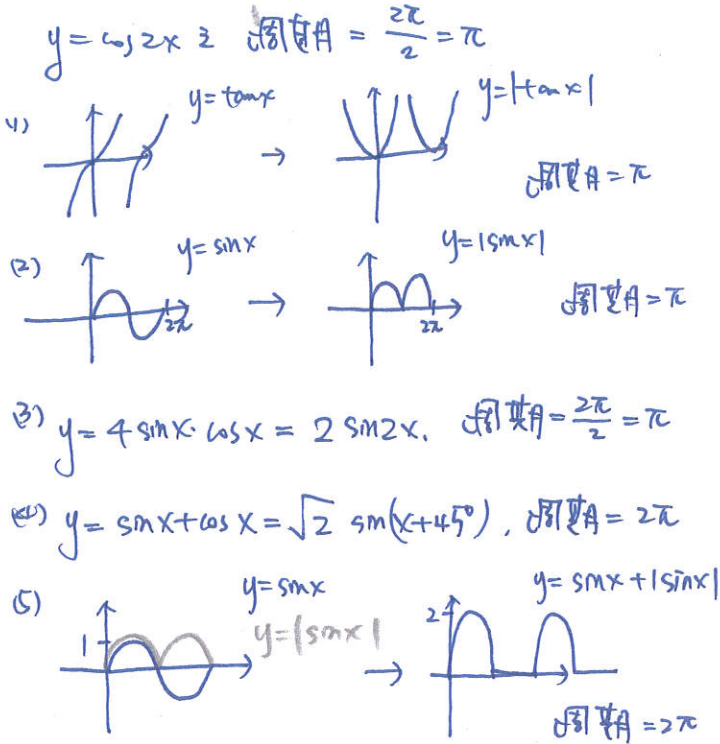 y = cos2x 之 週期 = 2π/2 = π
(1) y=tanx → y=|tanx|
週期 = π
(2) y=sinx 2π → y=|sinx| 2π 週期 = π
(3) y = 4 sinx·cosx = 2 sin2x. 週期 = 2π/2 = π
(4) y = sinx+cosx = √2 sin(x+45°), 週期 = 2π
(5) y=sinx y=sinx+|sinx|
1 y=|sinx| → 2
週期 = 2π